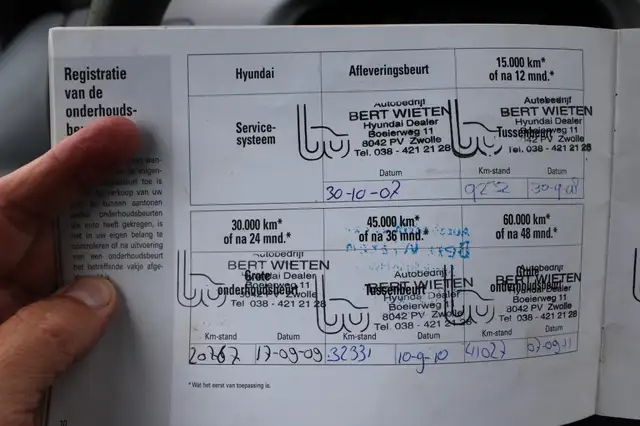 Registratie
van de
onderhouds-
Hyundai
Afleveringsbeurt
15.000 km*
of na 12 mnd.*
Service-
systeem
Autobedrijf
BERT WIETEN
Hyundai Dealer
Boeierweg 11
8042 PV Zwolle
Tel. 038 - 421 21 28
Datum
30-10-07
Autobedrijf
BERT WIETEN
Hyundai Dealer
Tussenbeurt
Boeierweg 11
8042 PV Zwolle
Tel. 038 - 421 21 28
Km-stand Datum
9232 30-9-08
verkoop van uw
u kunnen aantonen
onderhoudsbeurten
uw auto heeft gekregen, is
het in uw eigen belang te
controleren of na uitvoering
van een onderhoudsbeurt
het betreffende vakje afge-
30.000 km*
of na 24 mnd.*
45.000 km*
of na 36 mnd.*
60.000 km*
of na 48 mnd.*
Autobedrijf
BERT WIETEN
Grote
Hyundai Dealer
onderhoudsbeurt
Boeierweg 11
8042 PV Zwolle
Tel. 038 - 421 21 28
Km-stand Datum
20767 17-09-09
BERT WIETEN
Tussenbeurt
Hyundai Dealer
Boeierweg 11
8042 PV Zwolle
Tel. 038 - 421 21 28
Km-stand Datum
32331 10-9-10
BERT WIETEN
Grote
Hyundai Dealer
onderhoudsbeurt
Boeierweg 11
8042 PV Zwolle
Tel. 038 - 421 21 28
Km-stand Datum
41027 07-09-11
*Wat het eerst van toepassing is.